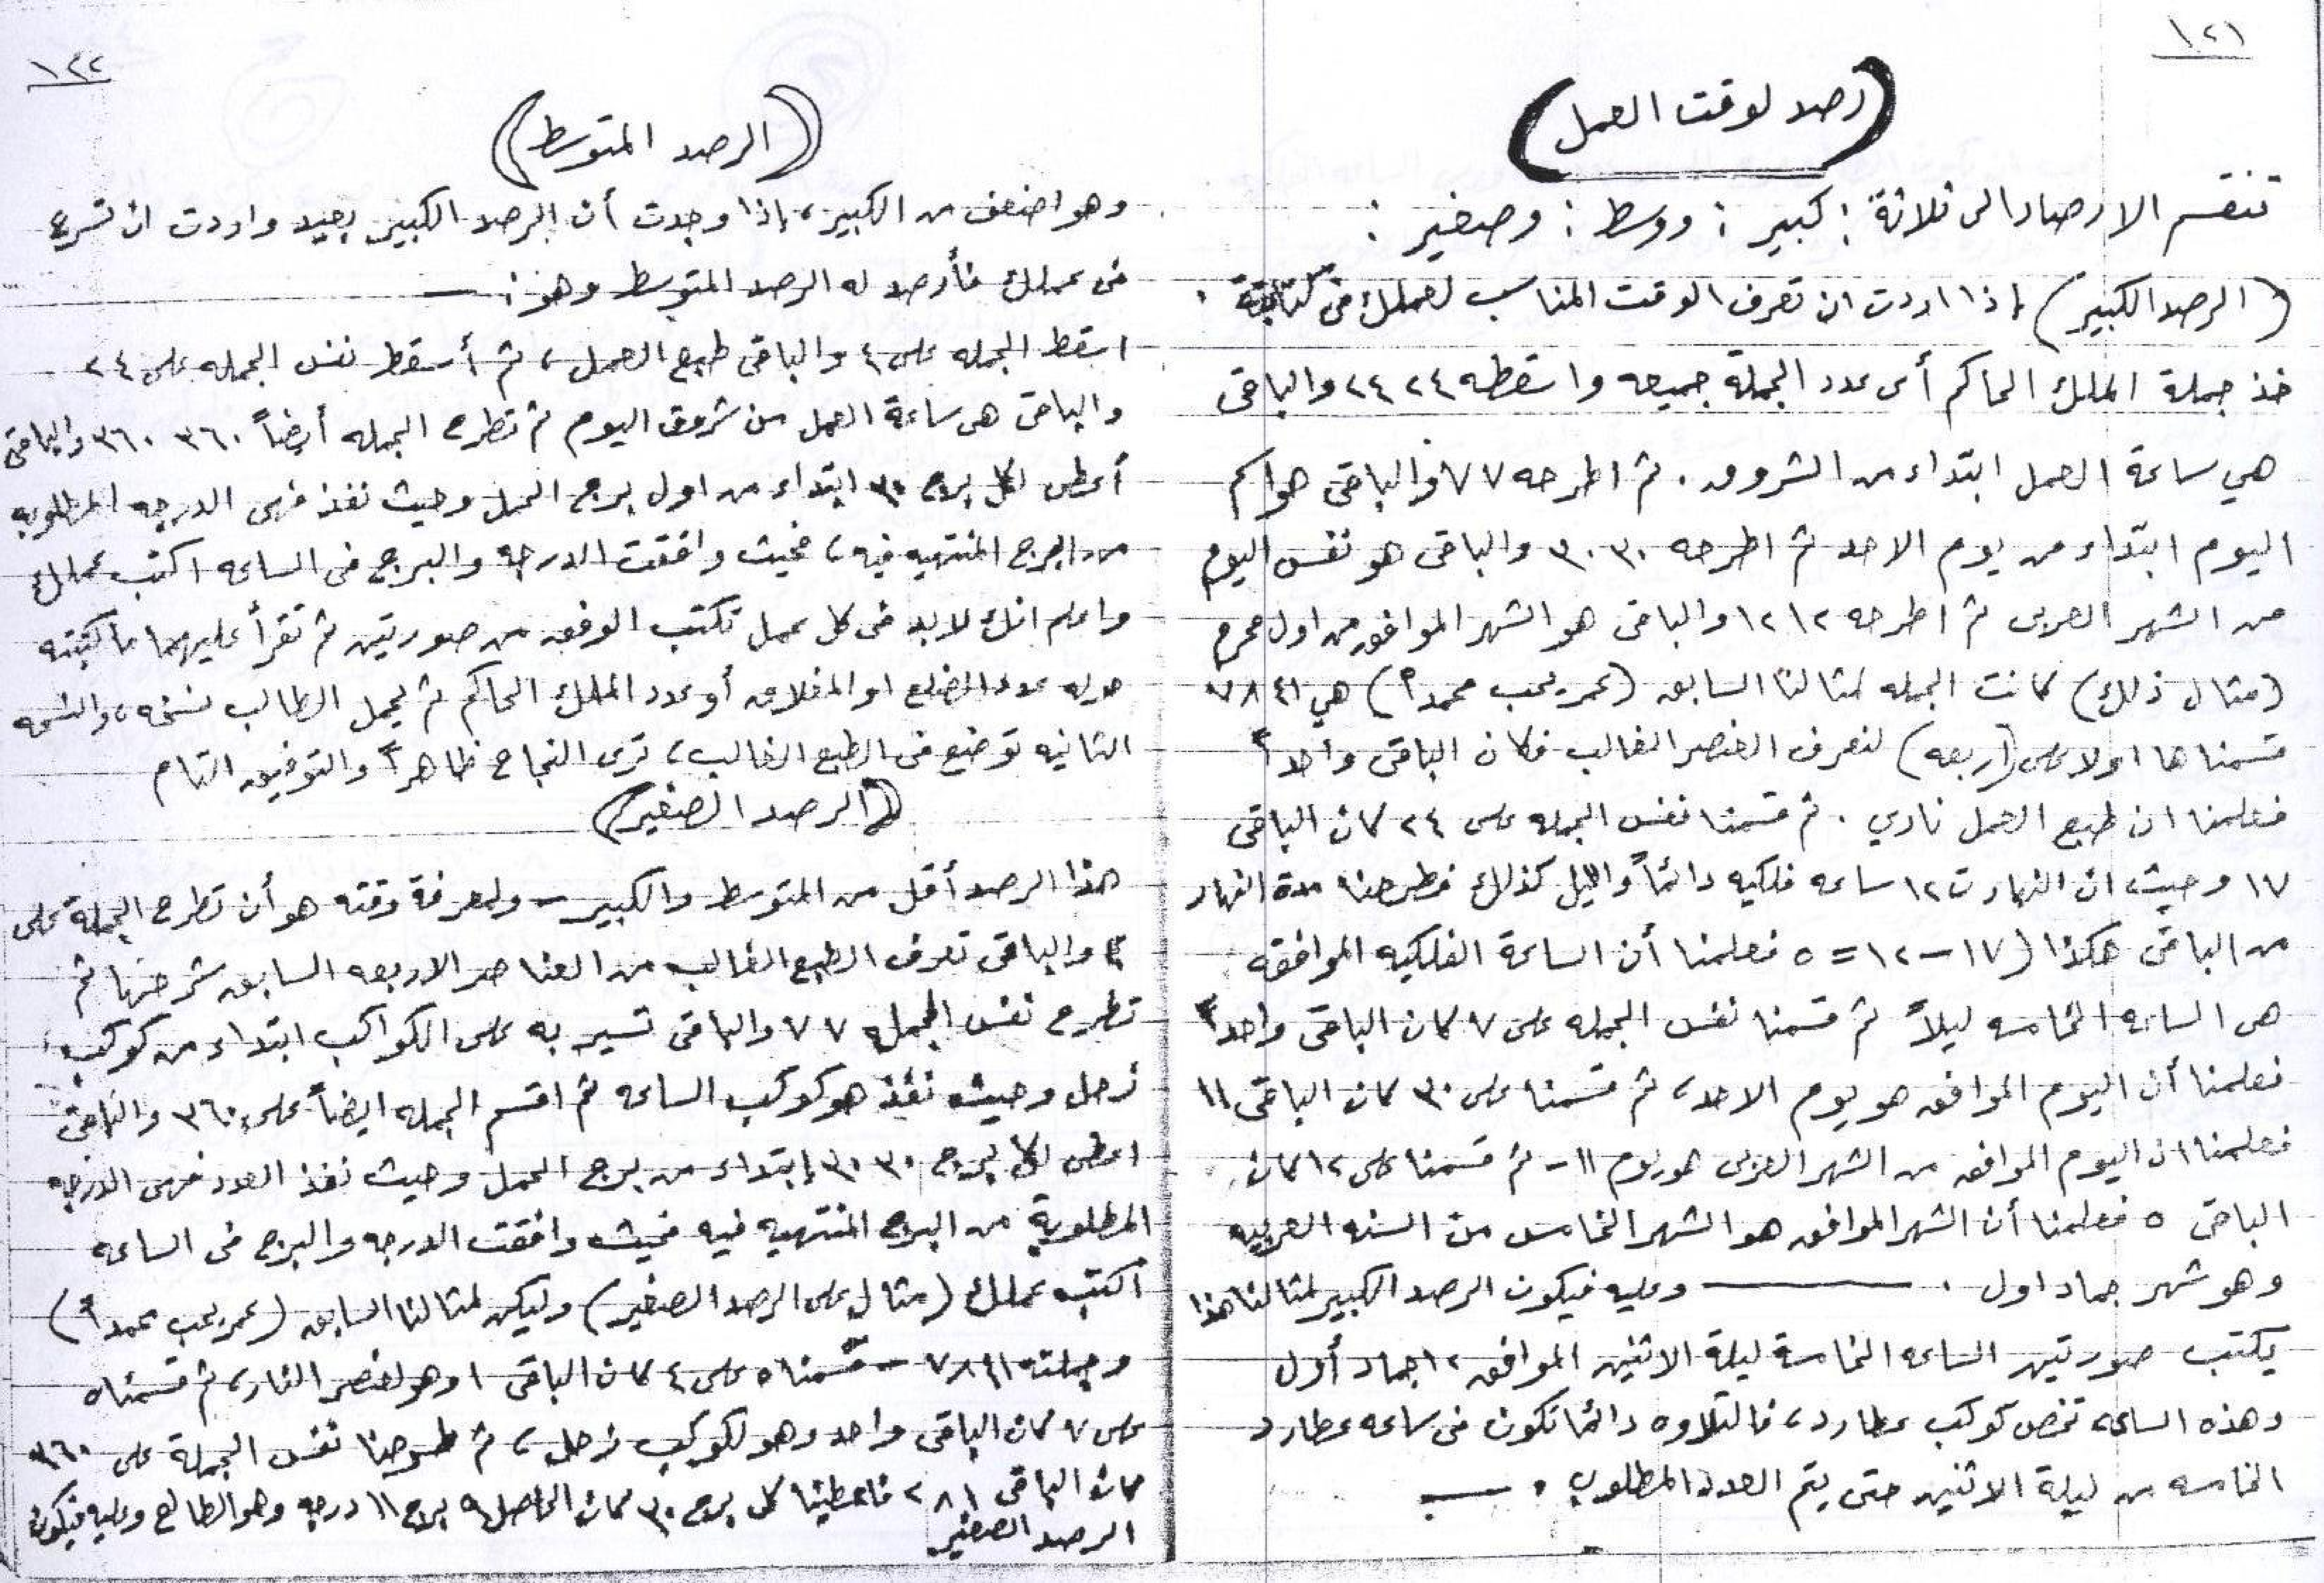 ١٢١
(رصد لوقت العمل)
تنقسم الارصاد الى ثلاثة : كبير : ووسط : وصغير :
(الرصد الكبير) إذا اردت ان تعرف الوقت المناسب لعملك فى كتابته .
خذ جملة الملك الحاكم أى عدد الجملة جميعه واسقطه ٢٤ ٢٤ والباقى
هي ساعة العمل ابتداء من الشروق . ثم اطرحه ٧ ٧ والباقى هو اسم
اليوم ابتداء من يوم الاحد ثم اطرحه ٣٠ ٣٠ والباقى هو نفس اليوم
من الشهر العربى ثم اطرحه ١٢ ١٢ والباقى هو الشهر الموافق من اول محرم
(مثال ذلك) كانت الجمله لمثالنا السابق (عمر يحب محمداً) هي ٧٨٤١
قسمناها اولا على (اربعه) لنعرف العنصر الغالب فكان الباقى واحداً
فعلمنا ان طبع العمل ناري . ثم قسمنا نفس الجمله على ٢٤ كان الباقى
١٧ وحيث ان النهار ت ١٢ ساعه فلكيه دائماً والليل كذلك فطرحنا مدة النهار
من الباقى هكذا (١٧ – ١٢ = ٥ فعلمنا أن الساعة الفلكيه الموافقه
هى الساعه الخامسه ليلاً ثم قسمنا نفس الجمله على ٧ كان الباقى واحداً
فعلمنا أن اليوم الموافق هو يوم الاحد، ثم قسمنا على ٣٠ كان الباقى ١١
فعلمنا ان اليوم الموافق من الشهر العربى هو يوم ١١ - ثم قسمنا على ١٢ كان
الباقى ٥ فعلمنا أن الشهر الموافق هو الشهر الخامس من السنه العربيه
وهو شهر جماد اول . ــــــ وعليه فيكون الرصد الكبير لمثالنا هذا
يكتب صورتين الساعه الخامسة ليلة الاثنين الموافق ١٢ جماد أول
وهذه الساعه تخص كوكب عطارد، فالتلاوه دائما تكون فى ساعه عطارد
الخامسه من ليلة الاثنين حتى يتم العدد المطلوب . ــ
١٢٢
((الرصد المتوسط))
وهو اضعف من الكبير، إذا وجدت أن الرصد الكبير بعيد واردت ان تسرع
فى عملك فأرصد له الرصد المتوسط وهو : ــ
اسقط الجمله على ٤ والباقى طبع العمل، ثم أسقط نفس الجمله على ٢٤
والباقى هى ساعة العمل من شروق اليوم ثم تطرح الجمله أيضاً ٣٦٠ ٣٦٠ والباقى
أعطى لكل برج ٣٠ ابتداء من اول برج الحمل وحيث نفذ فهى الدرجه المطلوبه
من البرج المنتهيه فيه، فحيث وافقت الدرجه والبرج فى الساعه اكتب عملك
واعلم انك لابد فى كل عمل تكتب الوفق من صورتين ثم تقرأ عليهما ما كتبته
حوله عدد الضلع او المغلاق أو عدد الملك الحاكم ثم يحمل الطالب نسخه، والنسخه
الثانيه توضع فى الطبع الغالب، ترى النجاح ظاهراً والتوفيق التام
((الرصد الصغير))
هذا الرصد أقل من المتوسط والكبير – ولمعرفة وقته هو أن تطرح الجملة على
٤ والباقى تعرف الطبع الغالب من العناصر الاربعه السابق شرحها ثم
تطرح نفس الجمله ٧ ٧ والباقى تسير به على الكواكب ابتداء من كوكب
زحل وحيث نفذ هو كوكب الساعه ثم اقسم الجمله ايضاً على ٣٦٠ والباقى
اعطى لكل برج ٣٠ ٣٠ إبتداء من برج الحمل وحيث نفذ العدد فهى الدرجه
المطلوبة من البرج المنتهيه فيه فحيث وافقت الدرجه والبرج فى الساعه
أكتب عملك (مثال على الرصد الصغير) وليكن لمثالنا السابق (عمر يحب محمداً)
وجملته ٧٨٤١ – قسمناه على ٤ كان الباقى ١ وهو لعنصر النار، ثم قسمناه
على ٧ كان الباقى واحد وهو لكوكب زحل، ثم طرحنا نفس الجملة على ٣٦٠
كان الباقى ٢٨١ فاعطينا كل برج ٣٠ كان الحاصل ٩ برج ١١ درجه وهو الطالع وعليه فيكون
الرصد الصغير